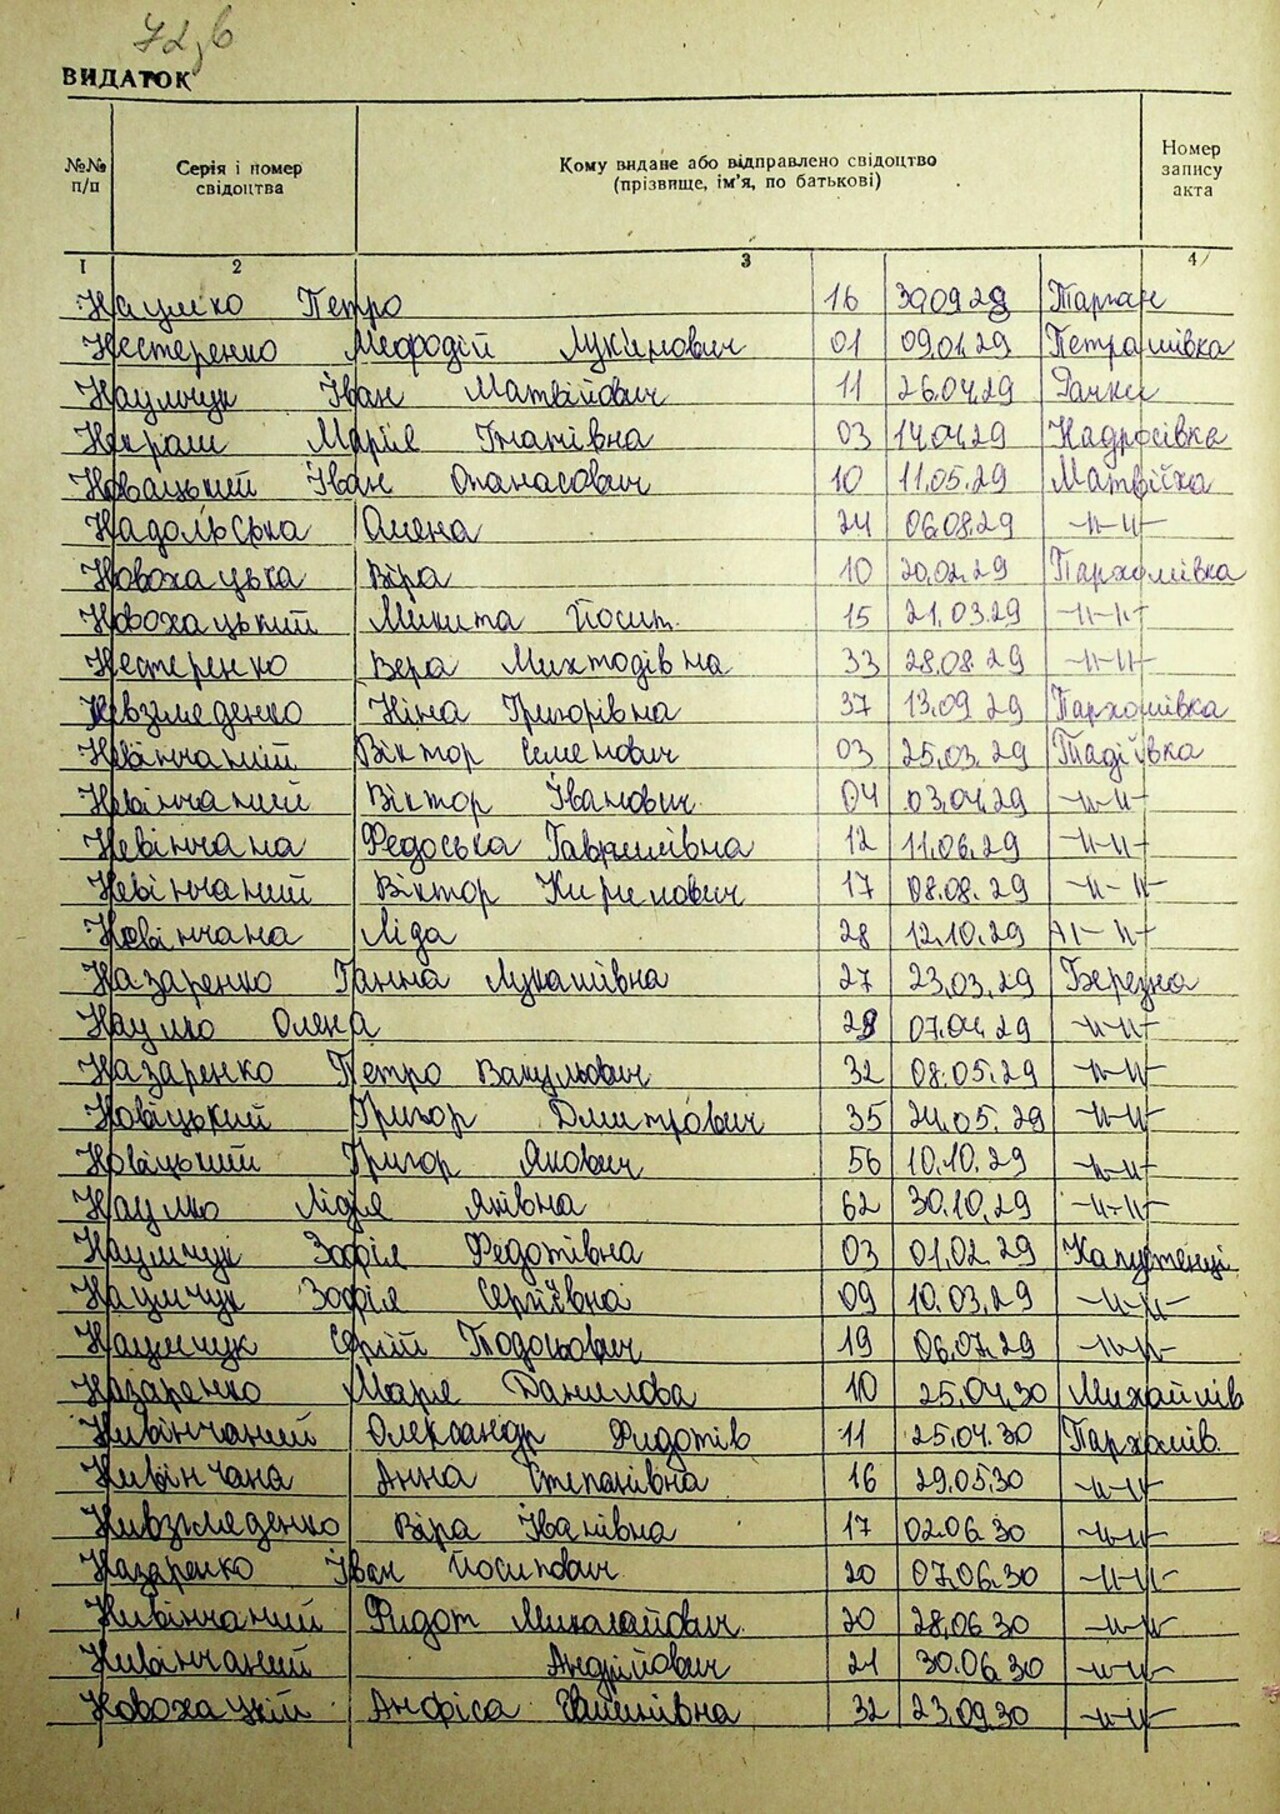 72,б
ВИДАТОК
№№ п/п Серія і номер свідоцтва Кому видане або відправлено свідоцтво (прізвище, ім'я, по батькові) Номер запису акта
1 2 3 4
Наумко Петро 16 30.09.29 Тарган
Нестеренко Мефодій Лукʼянович 01 09.01.29 Петрашівка
Наумчук Іван Матвійович 11 26.04.29 Рачки
Некраш Марія Гнатівна 03 14.04.29 Надросівка
Новацький Іван Опанасович 10 11.05.29 Матвіїха
Надольська Олена 24 06.08.29 -"-"-
Новохацька Віра 10 20.02.29 Пархомівка
Новохацький Микита Йосип. 15 21.03.29 -"-"-
Нестеренко Вера Михтодівна 33 28.08.29 -"-"-
Невзмеденко Ніна Григорівна 37 13.09.29 Пархомівка
Невінчаний Віктор Семенович 03 25.03.29 Тадіївка
Невінчаний Віктор Іванович 04 03.04.29 -"-"-
Невінчана Федоська Гаврилівна 12 11.06.29 -"-"-
Невінчаний Віктор Кирилович 17 08.08.29 -"-"-
Невінчана Ліда 28 12.10.29 -"-"-
Назаренко Ганна Лукашівна 27 23.03.29 Березна
Наумко Олена 29 07.04.29 -"-"-
Назаренко Петро Вакульович 32 08.05.29 -"-"-
Новіцький Григор Дмитрович 35 24.05.29 -"-"-
Новіцький Григор Якович 56 10.10.29 -"-"-
Наумко Лідія Яківна 62 30.10.29 -"-"-
Наумчук Зофія Федотівна 03 01.02.29 Капустенці
Наумчук Зофія Сергіївна 09 10.03.29 -"-"-
Наумчук Сергій Тодосьович 19 06.07.29 -"-"-
Назаренко Марія Данилова 10 25.04.30 Михайлів
Нивінчаний Олександр Фидотів 11 25.04.30 Пархомів.
Нивінчана Анна Степанівна 16 29.05.30 -"-"-
Нивзмеденко Віра Іванівна 17 02.06.30 -"-"-
Назаренко Іван Йосипович 20 07.06.30 -"-"-
Нивінчаний Фидот Миколайович 20 28.06.30 -"-"-
Нивінчаний Андрійович 21 30.06.30 -"-"-
Новохацкій Анфіса 32 23.09.30 -"-"-